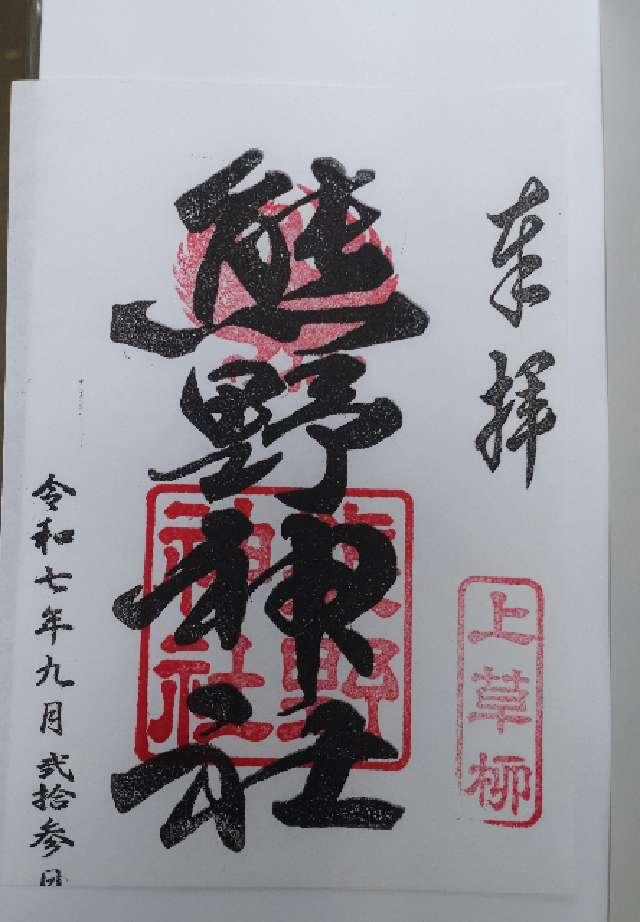 奉拝
上草柳
熊野神社
熊野神社
令和七年九月弐拾参日